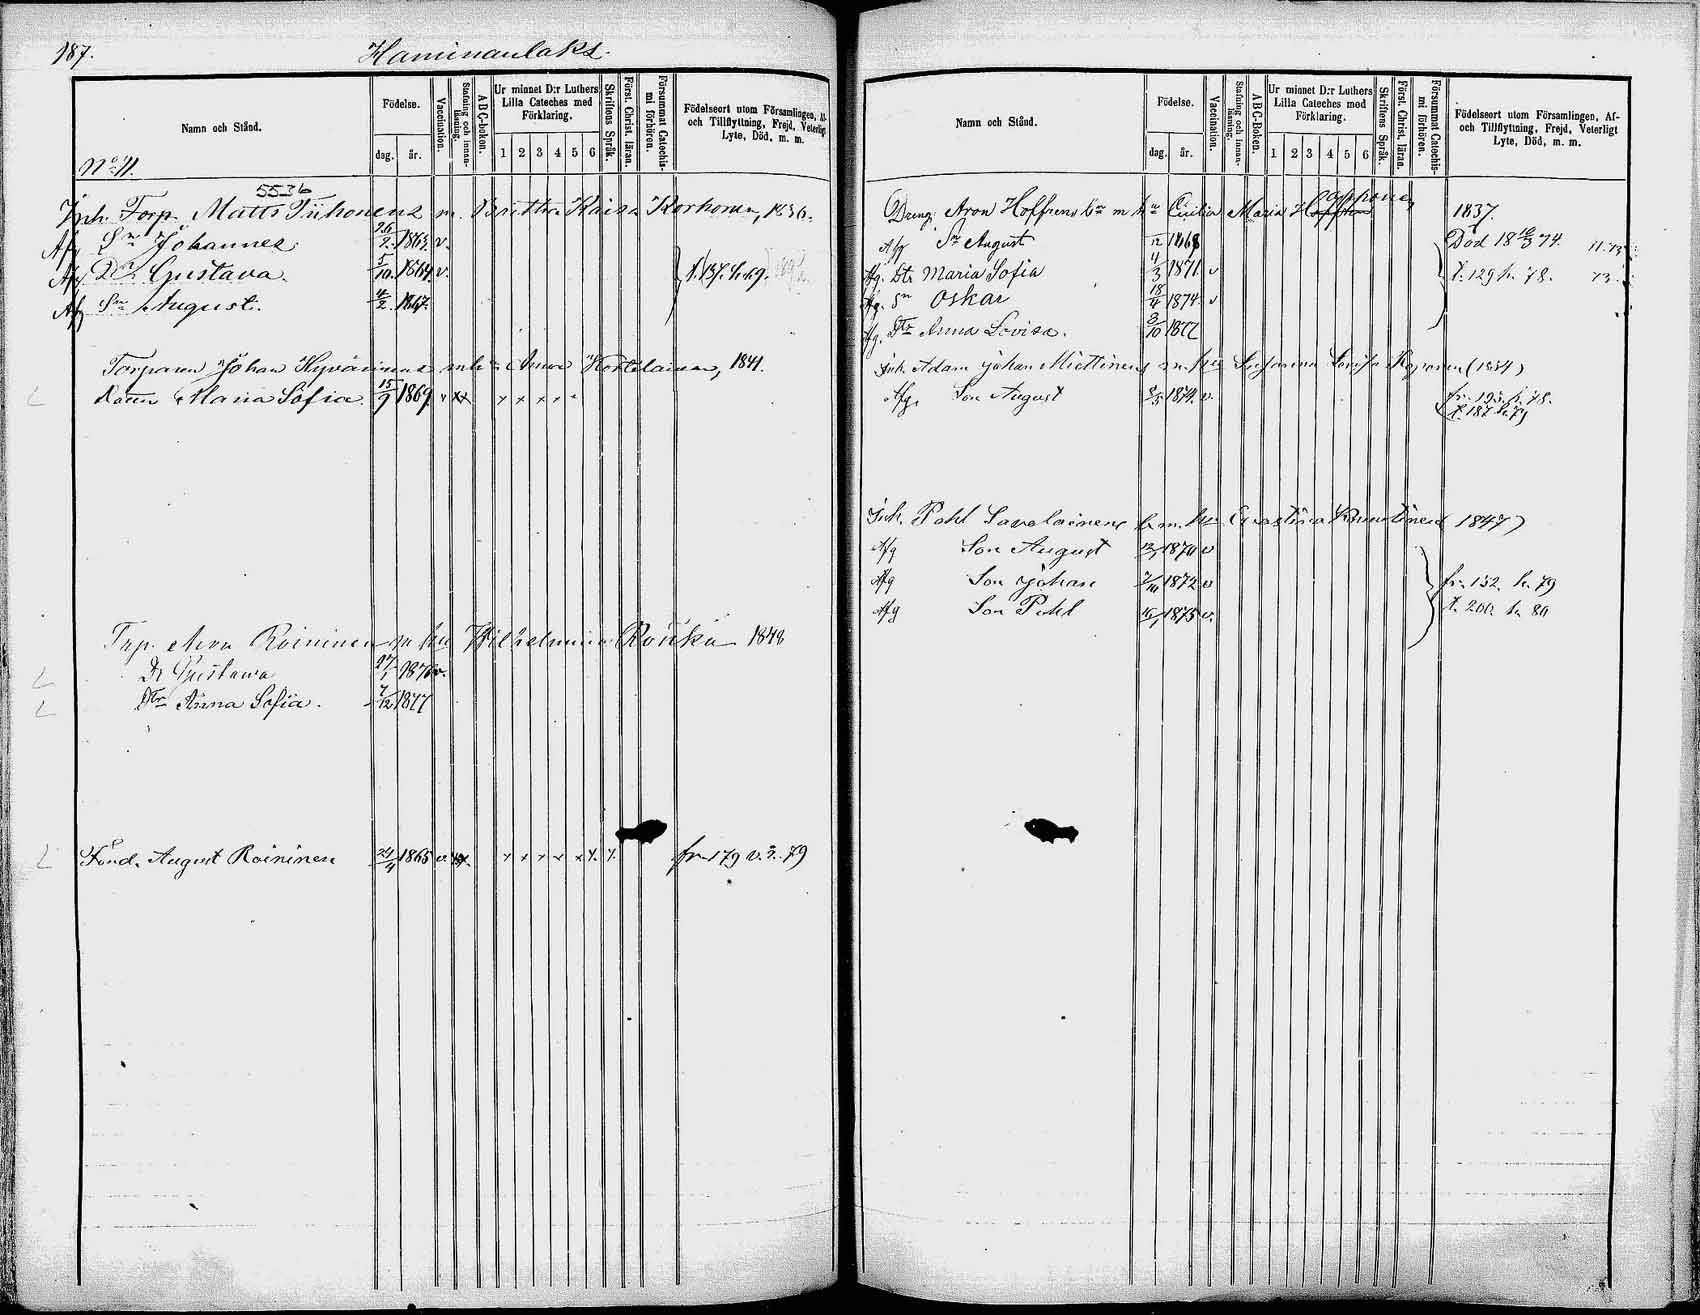 187.
Haminanlaks.
Namn och Stånd.
Födelse.
dag. år.
Vaccination.
Stafning och innanläsning.
A B C-boken.
Ur minnet D:r Luthers Lilla Cateches med Förklaring.
1 2 3 4 5 6
Skriftens Språk.
Först. Christ. läran.
Försummat Catechismi förhören.
Födelseort utom Församlingen, Af- och Tillflyttning, Frejd, Veterligt Lyte, Död, m. m.
No 11.
5536
Inh. Torp. Matts Tiihonens m. Britha Kaisa Korhonen, 1836.
Afg Sn Johannes. 26/2. 1863. v.
Afg Dr Gustava. 5/10. 1864. v. t. 137. h. 69.
Af Sn August. 4/2. 1867.
Torparen Johan Hyvärinens m h Anna Kortelainen, 1841.
Dottr Maria Sofia. 15/9 1869. v xx x x x x
Trp. Aron Roininen m hu Wilhelmina Rouka 1848
Dr Gustawa 27/1 1876 v.
Dtr Anna Sofia. 7/12 1877
Fond. August Roininen 24/4 1865 v. xx x x x x x x. x. fr. 179 v. 3. 79
Namn och Stånd.
Födelse.
dag. år.
Vaccination.
Stafning och innanläsning.
A B C-Boken.
Ur minnet D:r Luthers Lilla Cateches med Förklaring.
1 2 3 4 5 6
Skriftens Språk.
Först. Christ. läran.
Försummat Catechismi förhören.
Födelseort utom Församlingen, Af- och Tillflyttning, Frejd, Veterligt Lyte, Död, m. m.
Dreng. Aron Hoffrens bn m hu Cecilia Maria 1837.
Afg Sn August /12 1868 Död 18 74. 11. 73
Afg. Dtr Maria Sofia 4/3 1871. v t. 129 h. 78. 73.
Afg. Sn Oskar 18/4 1874. v
Afg. Dtr Anna Lovisa. 3/10 1877
Inh. Adam Johan Miettinens m. hu Susanna Lovisa Koponen (1854)
Afg. Son August 8/5 1874. v. fr. 195. h. 78.
t. 187 h. 79
Inh. Pohl Savolainens b. m. hu Kristina 1847)
Afg Son August 1870 v
Afg Son Johan 1872 v fr. 152. h. 79
Afg Son Pohl 1875 v. t. 200. h. 80